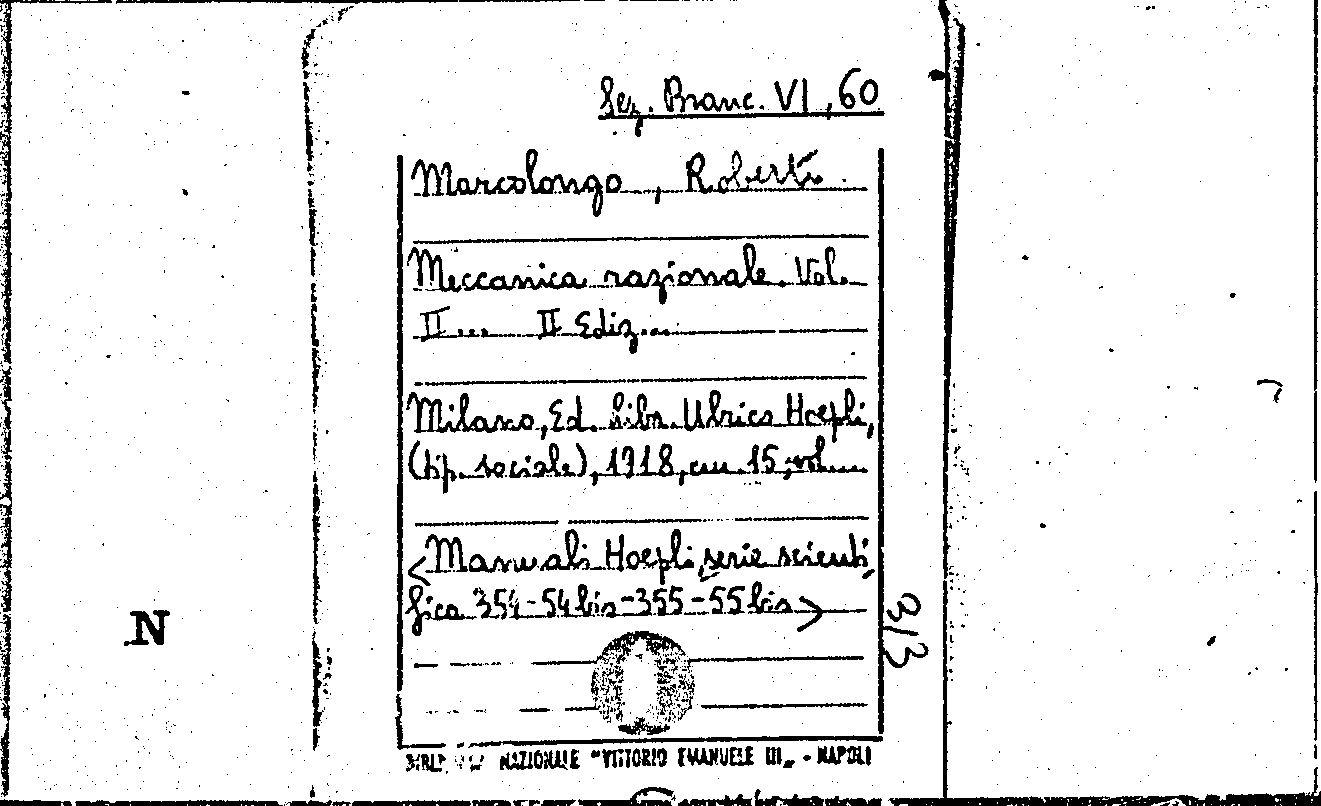 Sez. Branc. VI, 60
Marcolongo, Roberto.
Meccanica razionale. Vol.
II... II Ediz...
Milano, Ed. Libr. Ulrico Hoepli,
(tip. sociale), 1918, cm. 15, vol....
<Manuali Hoepli, serie scienti,
fica 354-54 bis-355-55 bis>
3/3
N
NAZIONALE "VITTORIO EMANUELE III„ - NAPOLI